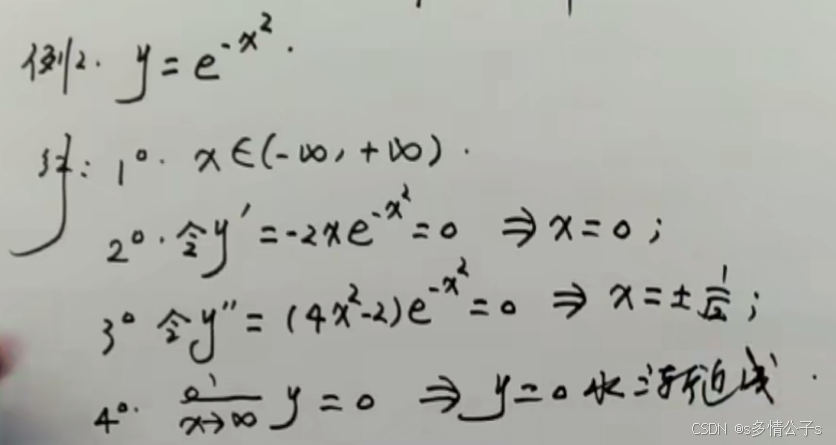 例2. y = e^{-x^2}.
解: 1°. x ∈ (-∞, +∞).
2°. 令 y' = -2xe^{-x^2} = 0 ⇒ x = 0;
3° 令 y'' = (4x^2-2)e^{-x^2} = 0 ⇒ x = ± 1/√2;
4°. x→∞ y = 0 ⇒ y = 0 水平渐近线.
CSDN @s多情公子s